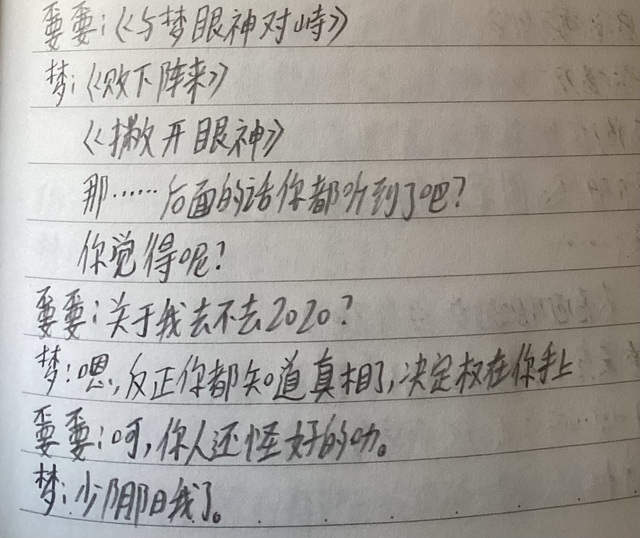 嫑嫑：《与梦眼神对峙》
梦：《败下阵来》
《撇开眼神》
那……后面的话你都听到了吧？
你觉得呢？
嫑嫑：关于我去不去2020？
梦：嗯，反正你都知道真相了，决定权在你手上
嫑嫑：呵，你人还怪好的叻。
梦：少阴阳我了。